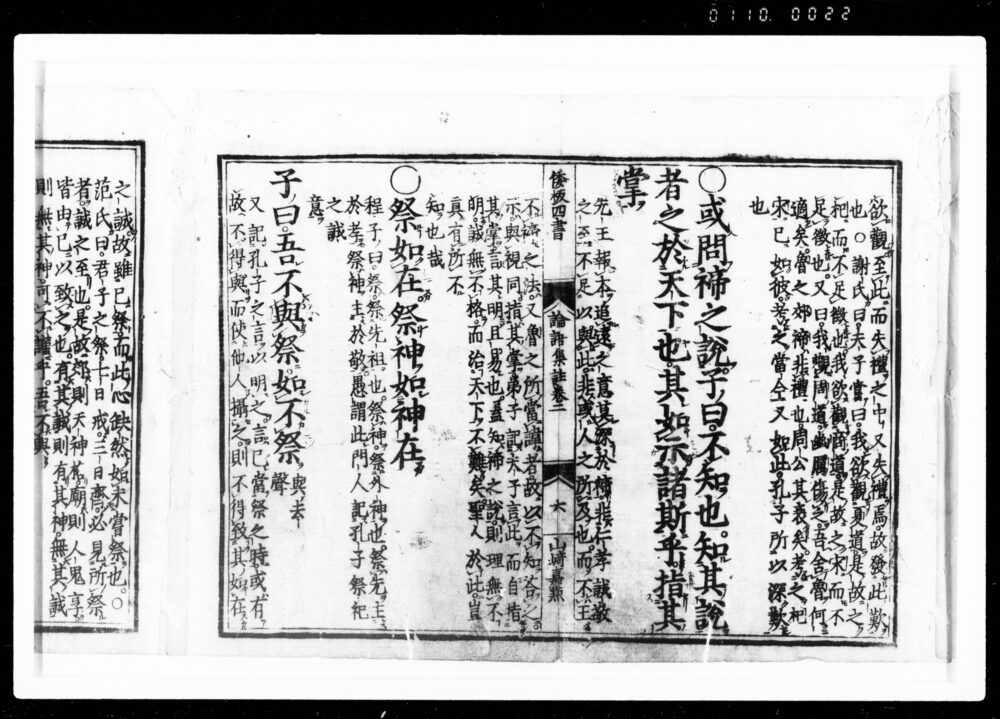 0110. 0022
欲觀至此而失禮之中又失禮焉故發此歎
也○謝氏曰夫子嘗曰我欲觀夏道是故之
杞而不足徵也我欲觀商道是故之宋而不
足徵也又曰我觀周道幽厲傷之吾舍魯何
適矣魯之郊禘非禮也周公其衰矣考之杞
宋已如彼考之當今又如此孔子所以深歎
也
○或問禘之說子曰不知也知其說
者之於天下也其如示諸斯乎指其
掌
先王報本追遠之意莫深於禘非仁孝誠敬
之至不足以與此非或人之所及也而不王
倭板四書 論語集註卷二 六 山崎嘉點
不禘之法又魯之所當諱者故以不知答之
示與視同指其掌弟子記夫子言此而自指
其掌言其明且易也蓋知禘之說則理無不
明誠無不格而治天下不難矣聖人於此豈
真有所不
知也哉
○祭如在祭神如神在
程子曰祭祭先祖也祭神祭外神也祭先主
於孝祭神主於敬愚謂此門人記孔子祭祀
之誠
意
子曰吾不與祭如不祭 與去聲
又記孔子之言以明之言已當祭之時或有
故不得與而使他人攝之則不得致其如在
之誠故雖已祭而此心缺然如未嘗祭也○
范氏曰君子之祭七日戒三日齊必見所祭
者誠之至也是故郊則天神格廟則人鬼享
皆由已以致之也有其誠則有其神無其誠
則無其神可不謹乎吾不與